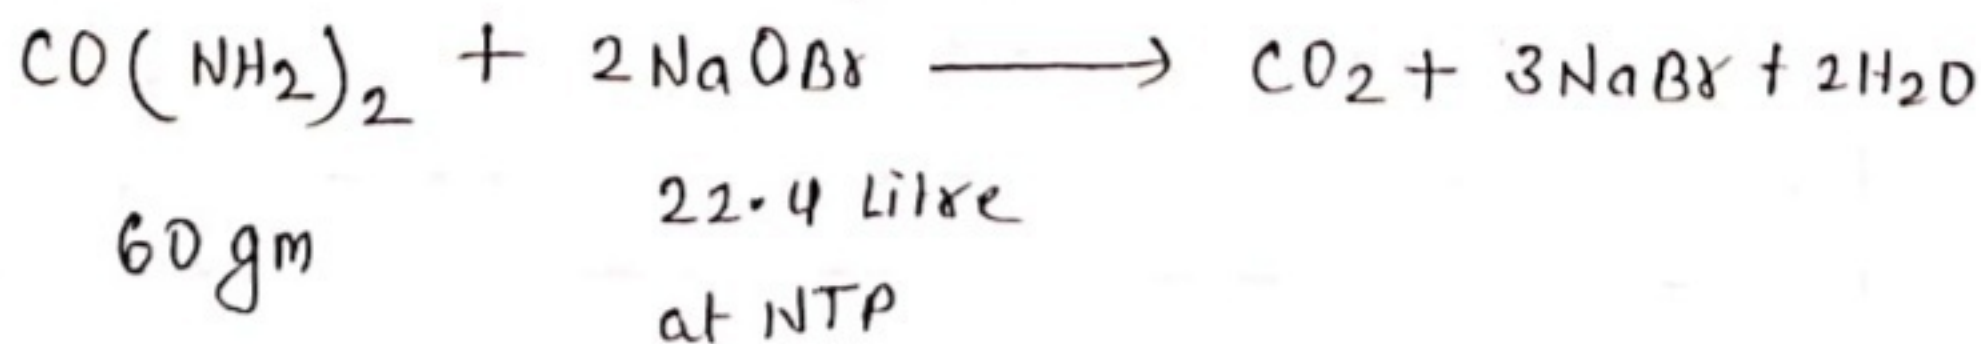 CO(NH2)2 + 2NaOBr ⟶ CO2 + 3NaBr + 2H2O
60 gm 22.4 Litre
at NTP